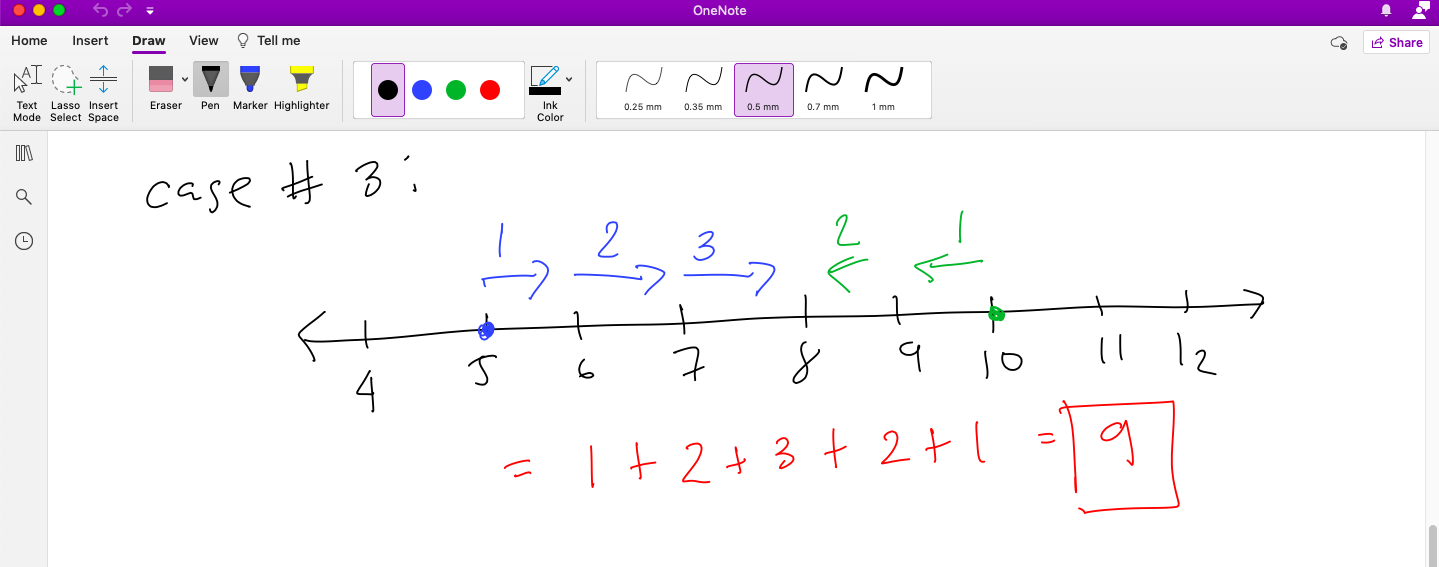 OneNote
Home Insert Draw View Tell me
Share
Text Mode Lasso Select Insert Space Eraser Pen Marker Highlighter Ink Color 0.25 mm 0.35 mm 0.5 mm 0.7 mm 1 mm
case # 3:
1 2 3 2 1
4 5 6 7 8 9 10 11 12
= 1 + 2 + 3 + 2 + 1 = 9